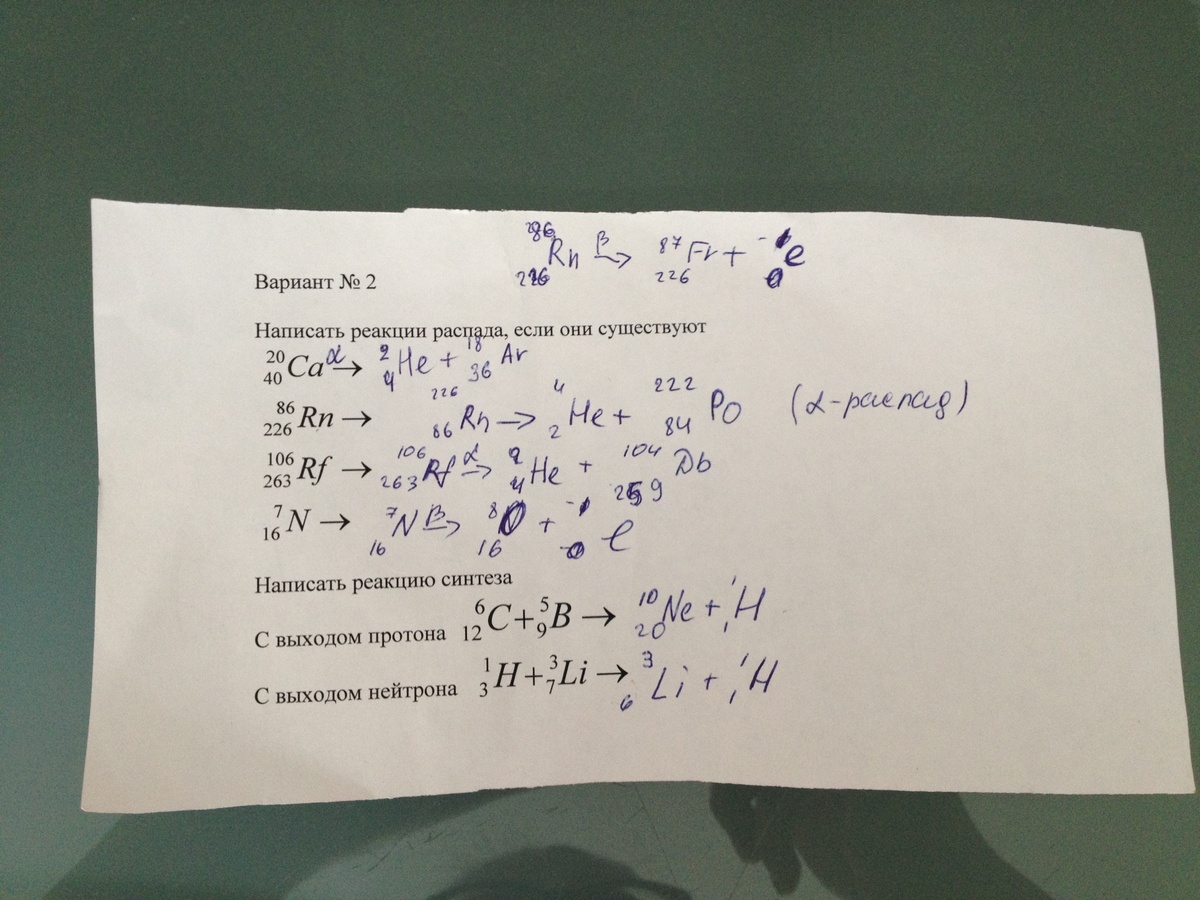 86 226 Rn β→ 87 226 Fr + -1 0 e
Вариант № 2
Написать реакции распада, если они существуют
20 40 Ca α→ 2 4 He + 18 36 Ar
86 226 Rn → 226 86 Rn → 4 2 He + 222 84 Po (α-распад)
106 263 Rf → 106 263 Rf α→ 2 4 He + 104 259 Db
7 16 N → 7 16 N β→ 8 16 O + -1 0 e
Написать реакцию синтеза
С выходом протона 6 12 C + 5 9 B → 10 20 Ne + 1 1 H
С выходом нейтрона 1 3 H + 3 7 Li → 3 6 Li + 1 1 H